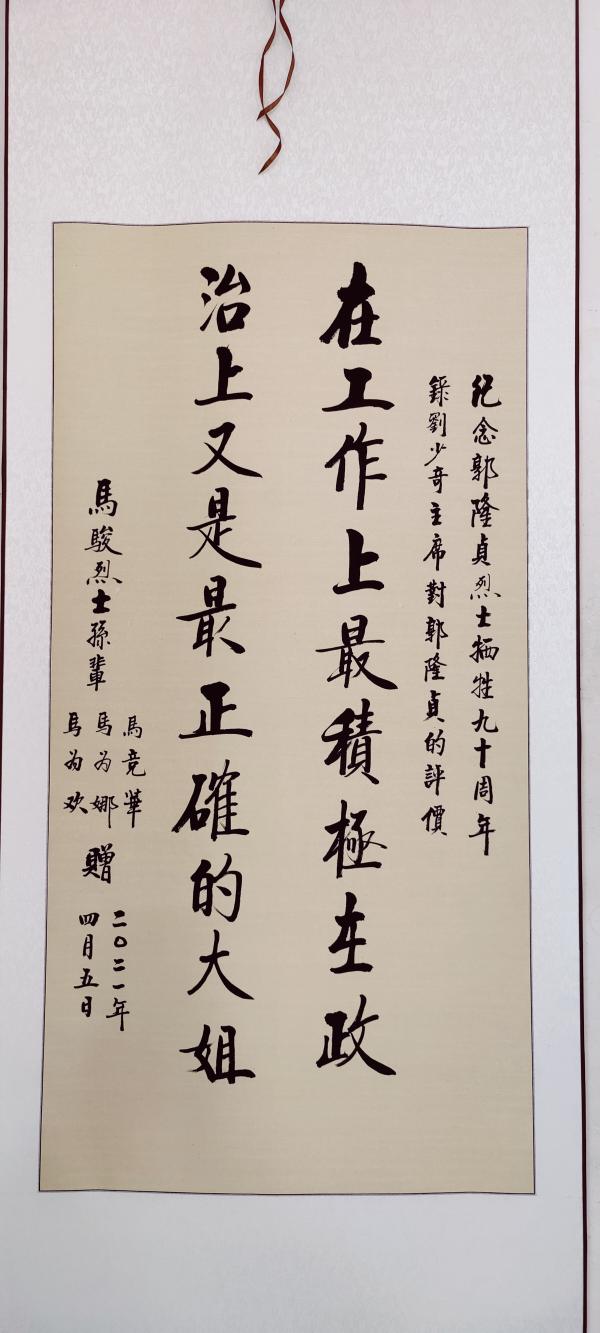 纪念郭隆貞烈士牺牲九十周年
錄劉少奇主席對郭隆貞的評價
在工作上最積極在政
治上又是最正確的大姐
馬駿烈士孫輩
馬竞華
馬为娜
馬为欢
贈
二〇二一年
四月五日